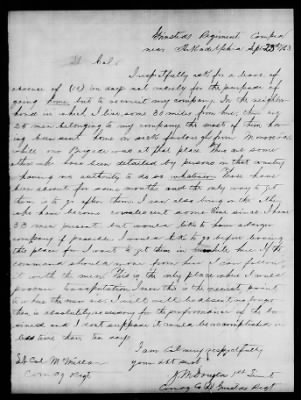 Grinsteds Regiment Compa
near Philadelphia Sept 23rd /63
Lt Col.
I respectfully ask for a leave of
absence of (10) ten days not merely for the purpose of
going home but to recruit my company. In the neighbor
hood in which I live some 30 miles from here, there are
20 men belonging to my company the most of them
having been sent home on sick furlough from
while our Brigade was at that place. There are some
others who have been detailed by persons in that country
having no authority to do so whatever. These have
been absent for some months and the only way to get
them is to go after them. I can also bring on the
who have become convalescent some time since. I have
38 men present but would like to have a larger
company if possible. I would like to go before leaving
this place for I want to get them in while here. If the
command should move from here I can follow
it with the men. This is the only place which I could
procure transportation from this is the nearest point
to where the men are. I will not be absent no longer
than is absolutely necessary for the performance of the bu
siness and I cant suppose it would be accomplished in
less time than ten days.
I am Col very respectfully
your obt servt
J M Douglas 1st Lieut
Comdg Co Grinsteds Regt
Lt Col McMillan
Comdg Regt